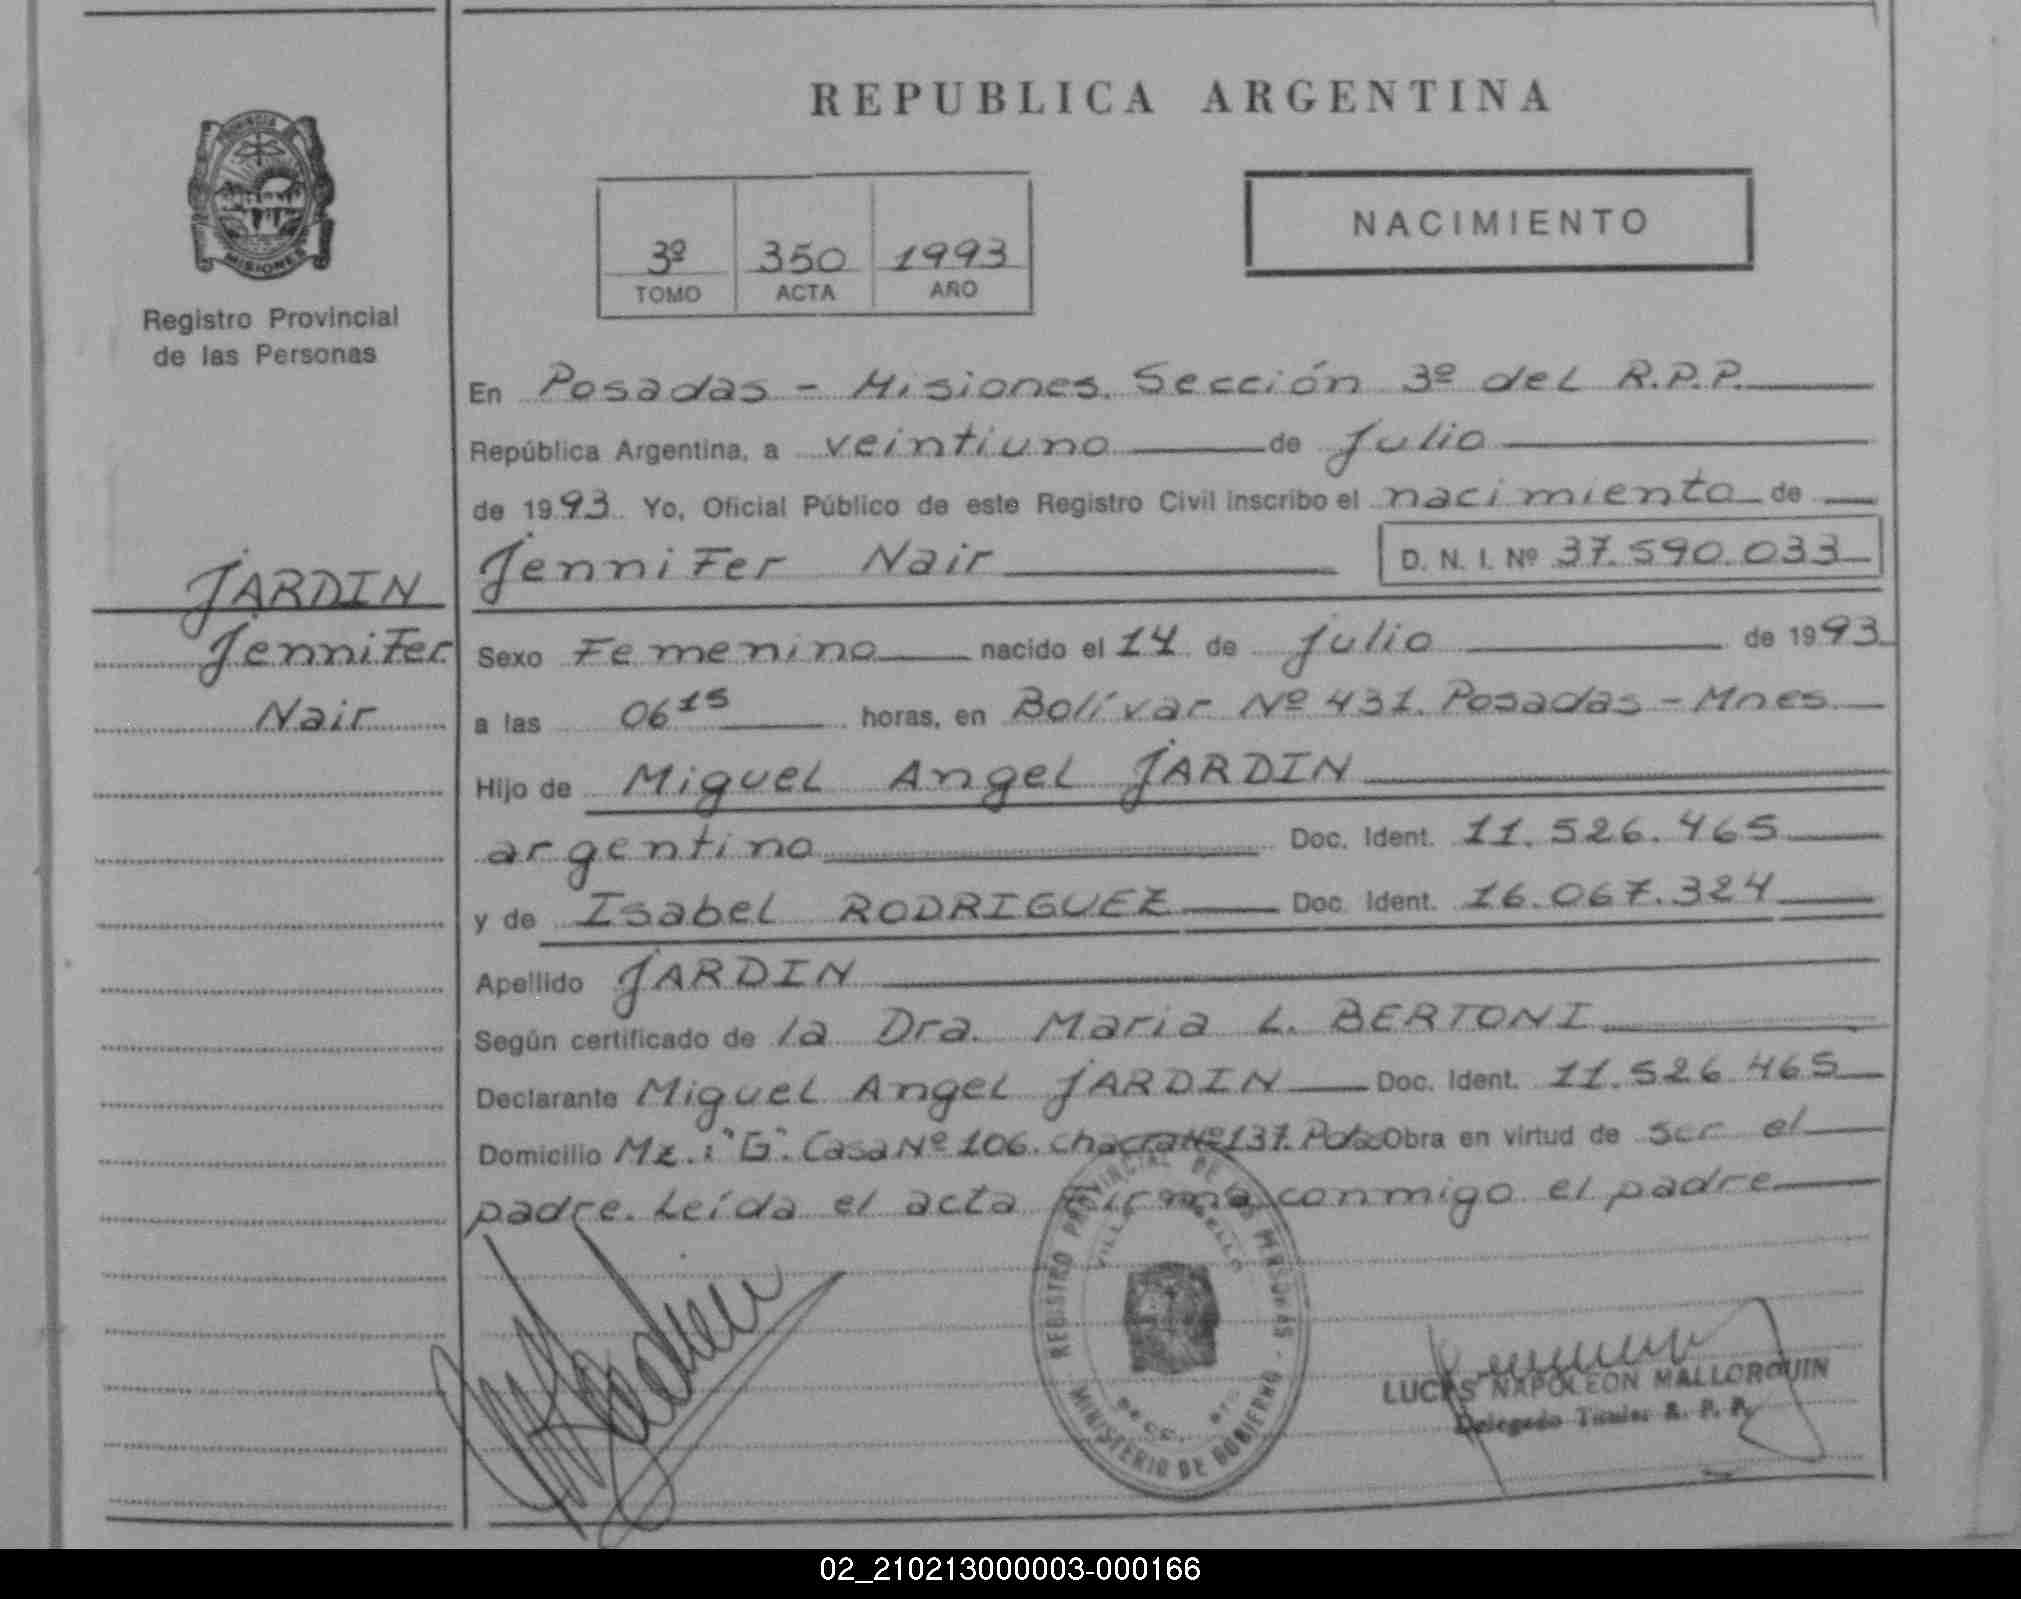 REPUBLICA ARGENTINA
PROVINCIA DE
MISIONES
Registro Provincial
de las Personas
3º 350 1993
TOMO ACTA AÑO
NACIMIENTO
En Posadas - Misiones. Sección 3º del R.P.P.
República Argentina, a veintiuno de Julio
de 1993 Yo, Oficial Público de este Registro Civil inscribo el nacimiento de
Jennifer Nair D. N. I. Nº 37.590.033
JARDIN
Jennifer
Nair
Sexo Femenino nacido el 14 de Julio de 1993
a las 06 15 horas, en Bolívar Nº 431. Posadas - Mnes.
Hijo de Miguel Angel JARDIN
argentino Doc. Ident. 11.526.465
y de Isabel RODRIGUEZ Doc. Ident. 16.067.324
Apellido JARDIN
Según certificado de la Dra. Maria L. BERTONI
Declarante Miguel Angel JARDIN Doc. Ident. 11.526.465
Domicilio Mz.: "G". Casa Nº 106. Chacra Nº 137. Pdas Obra en virtud de ser el
padre. Leída el acta firma conmigo el padre
REGISTRO PROVINCIAL DE LAS PERSONAS
MINISTERIO DE GOBIERNO
LUCAS NAPOLEON MALLORQUIN
Delegado Titular R. P. P.
02_210213000003-000166